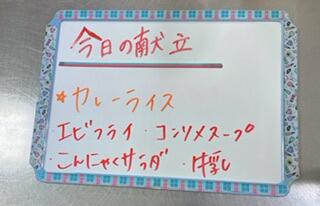 今日の献立
☆カレーライス
・エビフライ・コンソメスープ
・こんにゃくサラダ・牛乳